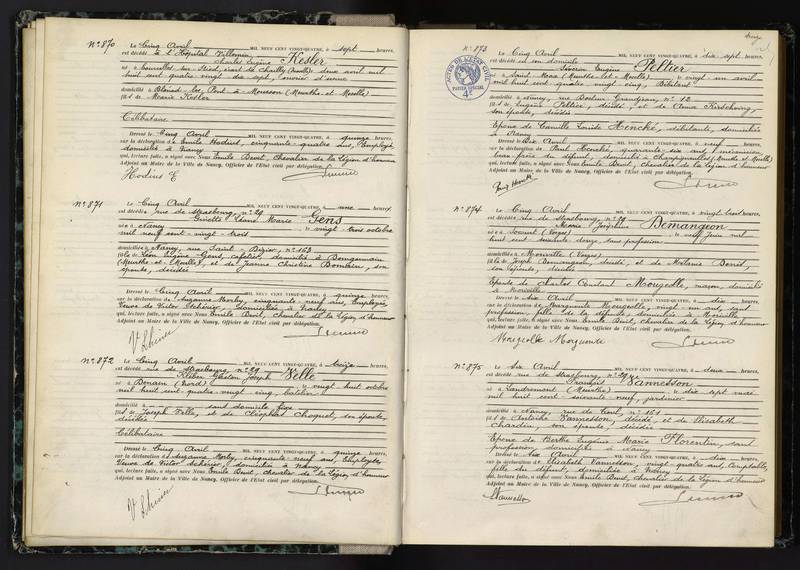 N° 870 Le Cinq Avril MIL NEUF CENT VINGT-QUATRE, à sept heures,
est décédé à l'Hôpital Villemin
Charles Eugène Kesler
né à
mil
huit cent quatre vingt dix sept,
domicilié à Blénod-les-Pont-à-Mousson (Meurthe et Moselle)
fils de Marie Kesler
Célibataire
Dressé le Cinq Avril MIL NEUF CENT VINGT-QUATRE, à quinze heures,
sur la déclaration de Emile Hodius, cinquante-quatre ans, Employé,
domicilié à Nancy
qui, lecture faite, a signé avec Nous Emile Chevalier de la Légion d'honneur
Adjoint au Maire de la Ville de Nancy, Officier de l'Etat civil par délégation.
Hodius E
N° 871 Le Cinq Avril MIL NEUF CENT VINGT-QUATRE, à une heure
est décédée rue de Strasbourg, n° 29
Marie Gens
née à Nancy le vingt trois octobre
mil neuf cent vingt trois
domiciliée à Nancy, rue Saint Dizier, n° 163
fille de Léon Eugène Gens, domicilié à
(Meurthe-et-Moselle), et de Jeanne Christine son
épouse, décédée
Dressé le Cinq Avril MIL NEUF CENT VINGT-QUATRE, à quinze heures,
sur la déclaration de Suzanne cinquante neuf ans, Employée,
Veuve de Victor domiciliée à Nancy
qui, lecture faite, a signé avec Nous Emile chevalier de la Légion d'honneur
Adjoint au Maire de la Ville de Nancy, Officier de l'Etat civil par délégation.
N° 872 Le Cinq Avril MIL NEUF CENT VINGT-QUATRE, à treize heures,
est décédé rue de Strasbourg, n° 29
Gaston Joseph Velle
né à Denain (Nord) le vingt huit octobre
mil huit cent quatre vingt cinq,
domicilié à sans domicile fixe
fils de Joseph Velle, et de Choquet, son épouse,
décédés
Célibataire
Dressé le Cinq Avril MIL NEUF CENT VINGT-QUATRE, à quinze heures,
sur la déclaration de Suzanne cinquante-neuf ans, Employée
Veuve de Victor domiciliée à Nancy
qui, lecture faite, a signé avec Nous Emile chevalier de la Légion d'honneur
Adjoint au Maire de la Ville de Nancy, Officier de l'Etat civil par délégation.
N° 873 Le Cinq Avril MIL NEUF CENT VINGT-QUATRE, à dix sept heures,
est décédé en son domicile
Eugène Peltier
né à Saint Max (Meurthe-et-Moselle) le vingt un avril
mil huit cent quatre vingt cinq, Débitant
domicilié à Nancy, rue Docteur Grandjean, n° 12
fils de Eugène Peltier, décédé, et de Anna
son épouse, décédée
Epoux de Camille Louise Henché, débitante, domiciliée
à Nancy
Dressé le Six Avril MIL NEUF CENT VINGT-QUATRE, à neuf heures,
sur la déclaration de Paul Henché, quarante-six ans, mécanicien,
beau-frère du défunt, domicilié à Champigneulles (Meurthe et Moselle)
qui, lecture faite, a signé avec Nous Emile Chevalier de la Légion d'honneur
Adjoint au Maire de la Ville de Nancy, Officier de l'Etat civil par délégation.
N° 874 Le Cinq Avril MIL NEUF CENT VINGT-QUATRE, à vingt trois heures,
est décédée rue de Strasbourg, n° 29
Marie Joséphine Demangeon
née à (Vosges) le neuf Juin mil
huit cent soixante douze, sans profession
domiciliée à (Vosges)
fille de Joseph Demangeon, décédé, et de Mélanie
son épouse, décédée
Epouse de Charles Constant Mougeolle, maçon, domicilié
Dressé le Six Avril MIL NEUF CENT VINGT-QUATRE, à dix heures,
sur la déclaration de Marguerite Mougeolle, vingt-un ans, sans
profession, fille de la défunte, domiciliée à
qui, lecture faite, a signé avec Nous Emile chevalier de la Légion d'honneur
Adjoint au Maire de la Ville de Nancy, Officier de l'Etat civil par délégation.
N° 875 Le Six Avril MIL NEUF CENT VINGT-QUATRE, à deux heures,
est décédé rue de Strasbourg, n° 29
François Vannesson
né à Landremont (Meurthe) le dix sept mars
mil huit cent soixante neuf, jardinier
domicilié à Nancy, rue de Toul, n° 161
fils de Vannesson, décédé, et de Elisabeth
Chardin, son épouse, décédée
Epoux de Berthe Eugénie Marie Florentin, sans
profession, domiciliée à Nancy
Dressé le Six Avril MIL NEUF CENT VINGT-QUATRE, à dix heures,
sur la déclaration de Elisabeth Vannesson, vingt-quatre ans, Comptable,
fille du défunt, domiciliée à Nancy
qui, lecture faite, a signé avec Nous Emile chevalier de la Légion d'honneur
Adjoint au Maire de la Ville de Nancy, Officier de l'Etat civil par délégation.